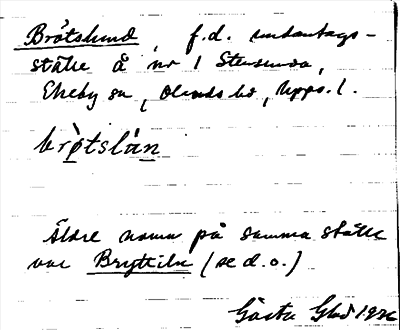 Brötslund, f.d. undantags-
ställe å nr 1 Stensunda,
Ekeby sn, Olands hd, Upps. l.
brö̀tslún
Äldre namn på samma ställe
var Bryttila (se d.o.)
Gösta